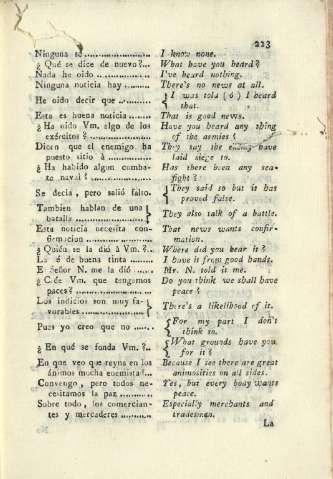 223
Ninguna sé ................ I know none.
¿ Qué se dice de nuevo?... What have you heard?
Nada he oido ............. I've heard nothing.
Ninguna noticia hay ........ There's no news at all.
He oido decir que .......... { I was told ( ó ) I heard
that.
Esta es buena noticia ...... That is good news.
¿ Ha oido Vm. algo de los Have you heard any thing
exércitos ? ............... of the armies ?
Dicen que el enemigo ha They say the enemy have
puesto sitio á ............ laid siege to.
¿ Ha habido algun comba- Has there been any sea-
te naval ? ................ fight ?
Se decia , pero salió falso. { They said so but is has
proved false.
Tambien hablan de una }
batalla .................. They also talk of a battle.
Esta noticia necesita con- That news wants confir-
firmacion ................ mation.
¿ Quién se la dió á Vm. ?.. Where did you hear it ?
La sé de buena tinta ....... I have it from good hands.
El Señor N. me la dió ...... Mr. N. told it me.
¿ Cree Vm. que tengamos Do you think we shall have
paces? ................... peace ?
Los indicios son muy fa- }
vorables ................. There's a likelihood of it.
Pues yo creo que no ...... { For my part I don't
think so.
¿ En qué se funda Vm. ?.. { What grounds have you
for it ?
En que veo que reyna en los Because I see there are great
ánimos mucha enemistad... animosities on all sides.
Convengo , pero todos ne- Yes, but every body wants
cesitamos la paz .......... peace.
Sobre todo , los comercian- Especially merchants and
tes y mercaderes .......... tradesman.
La